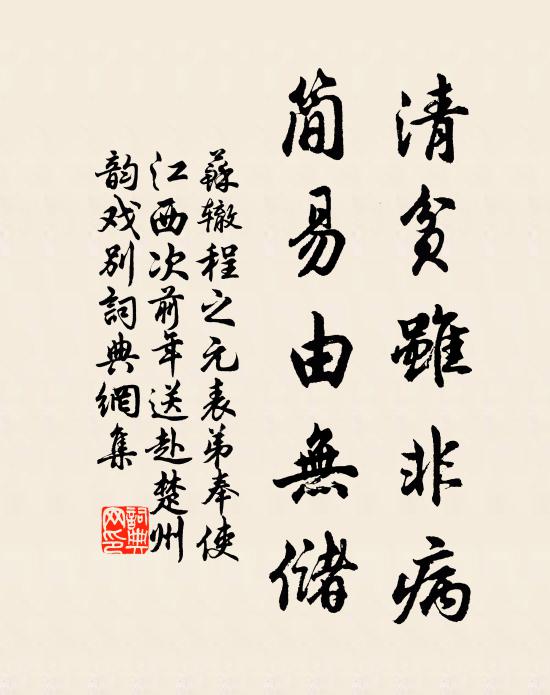 清貧雖非病
簡易由無儲
蘇轍程之元表弟奉使
江西次前年送赴楚州
韵戏别詞典網集
詞典
网印